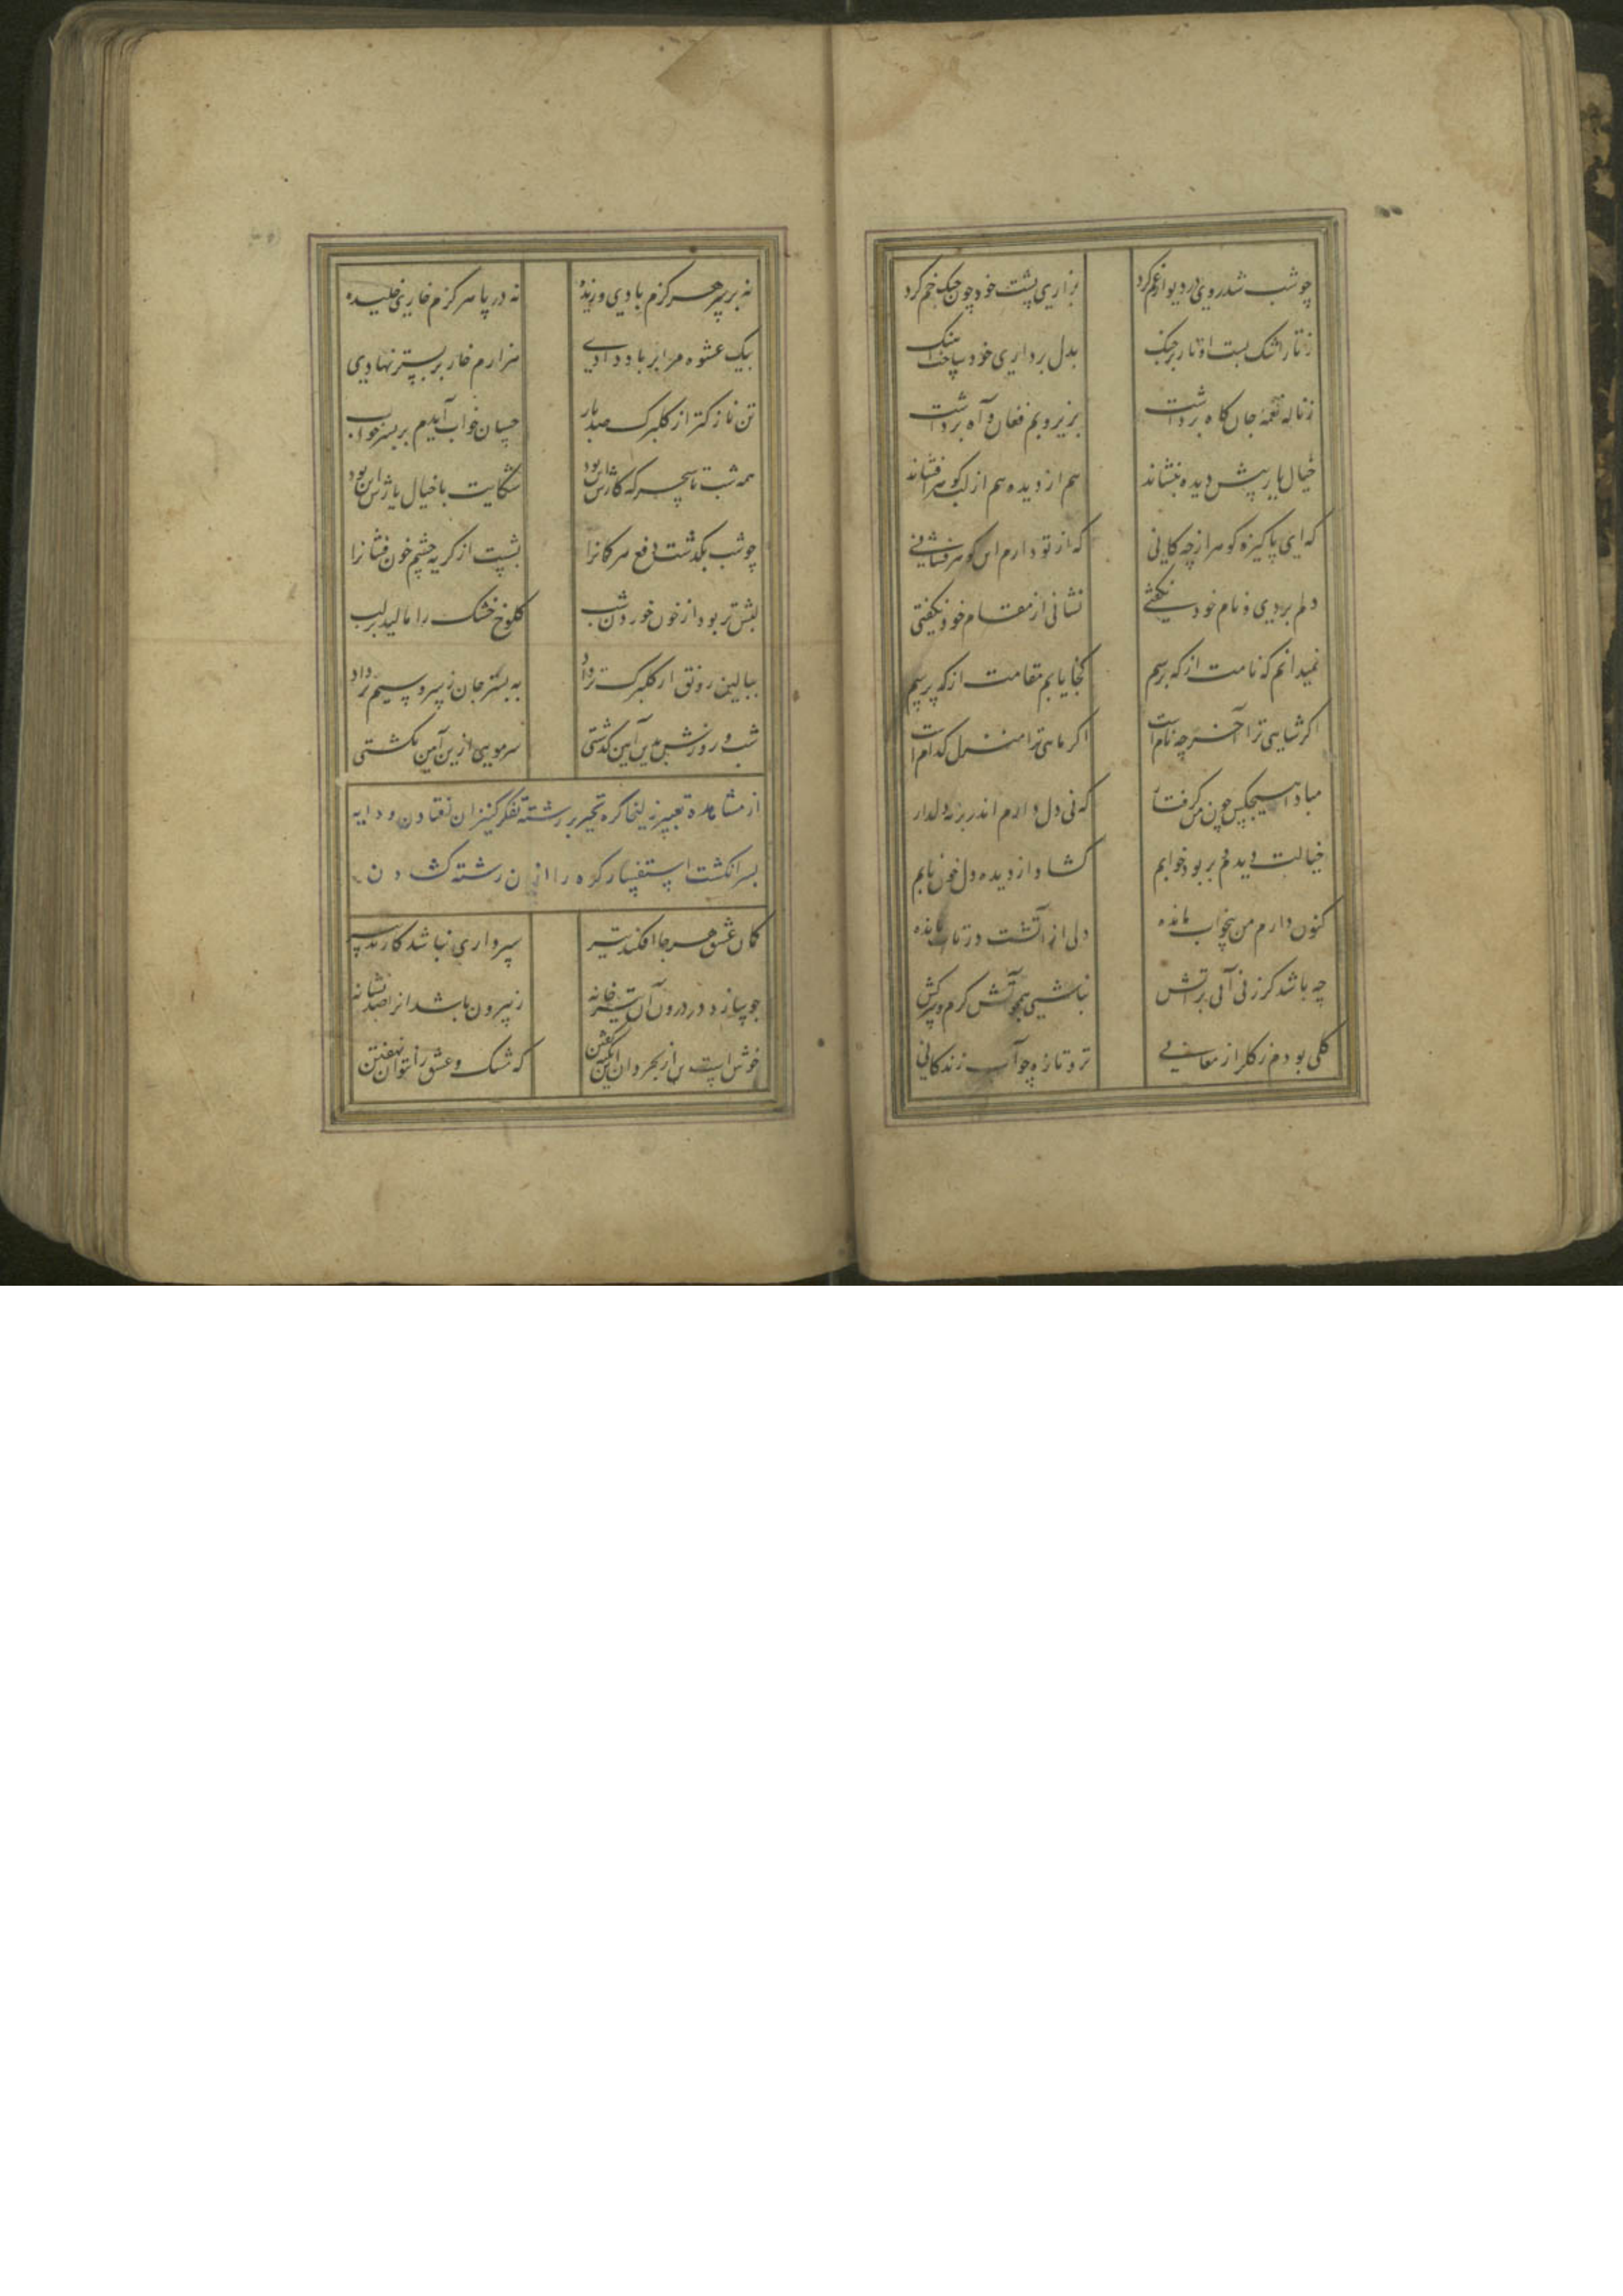 چو شب شد روی در دیوار غم کرد بزاری پشت خود چون چنگ خم کرد
ز تار اشک بست اوتار بر چنگ بدل برداری خود ساخت آهنگ
ز ناله نغمهٔ جان کاه برداشت بزیر و بم فغان و آه برداشت
خیال یار پیش دیده بنشاند هم از دیده هم از لب گوهر افشاند
که ای پاکیزه کوهر از چه کانی که از تو دارم این کوهر فشانی
دلم بردی و نام خود نکفتی نشانی از مقام خود نکفتی
نمیدانم که نامت از که پرسم کجا یابم مقامت از که پرسم
اکر شاهی ترا آخر چه نام است اکر ماهی ترا منزل کدام است
مبادا هیچکس چون من کرفتار که نی دل دارم اندر بر نه دلدار
خیالت دیدم و بربود خوابم کشاد از دیده و دل خون نابم
کنون دارم من بیخواب مانده دلی از آتشت در تاب مانده
چه باشد کر زنی آبی بر آتش نباشی همچو آتش کرم و سرکش
کلی بودم ز کلزار معانی تر و تازه چو آب زندکانی
نه بر سر هرکزم بادی وزیده نه در پا هرکزم خاری خلیده
بیک عشوه مرا بر باد دادی هزارم خار بر بستر نهادی
تن نازکتر از کلبرک صدبار چسان خواب آیدم بر بستر
همه شب تا سحرکه کارش این بود شکایت با خیال یارش این بود
چو شب بکذشت دفع هر کمانرا بشست از کریه چشم خون فشانرا
لبش تر بود از خون خوردن شب کلوخ خشک را مالید بر لب
ببالین رونق از کلبرک تر داد به بستر جان ز سرو سیم‌بر داد
شب و روزش بدین آیین کذشتی سر مویی ازین آیین نکشتی
از مشاهده تغییر زلیخا کره تحیر بر رشتهٔ تفکر کنیزان افتادن و دایه
بسر انکشت استفسار کره را از آن رشته کشادن
کمان عشق هرجا افکند تیر سپرداری نباشد کار تدبیر
چو سازد در درون آن تیر خانه ز بیرون باشد آنرا صد نشانه
خوش است از بخردان این نکته کفتن که مشک و عشق را نتوان نهفتن